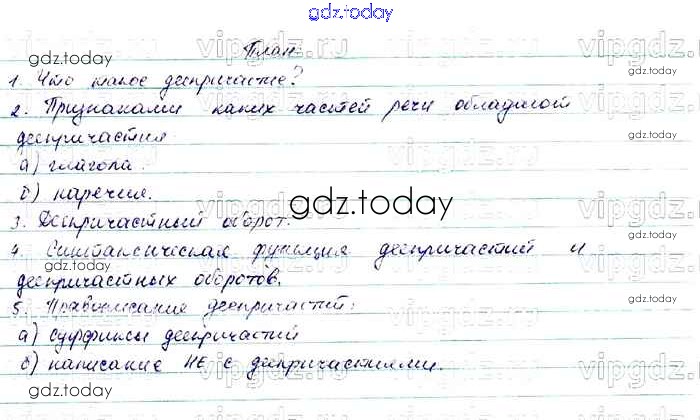 gdz.today
План:
1. Что такое деепричастие?
2. Признаками каких частей речи обладают
деепричастия
а) глагола.
б) наречия.
3. Деепричастный оборот.
4. Синтаксическая функция деепричастий и
деепричастных оборотов.
5. Правописание деепричастий:
а) суффиксы деепричастий
б) написание НЕ с деепричастиями.
gdz.today
gdz.today
gdz.today
gdz.today
gdz.today
gdz.today
gdz.today
gdz.today
vipgdz.ru
vipgdz.ru
vipgdz.ru